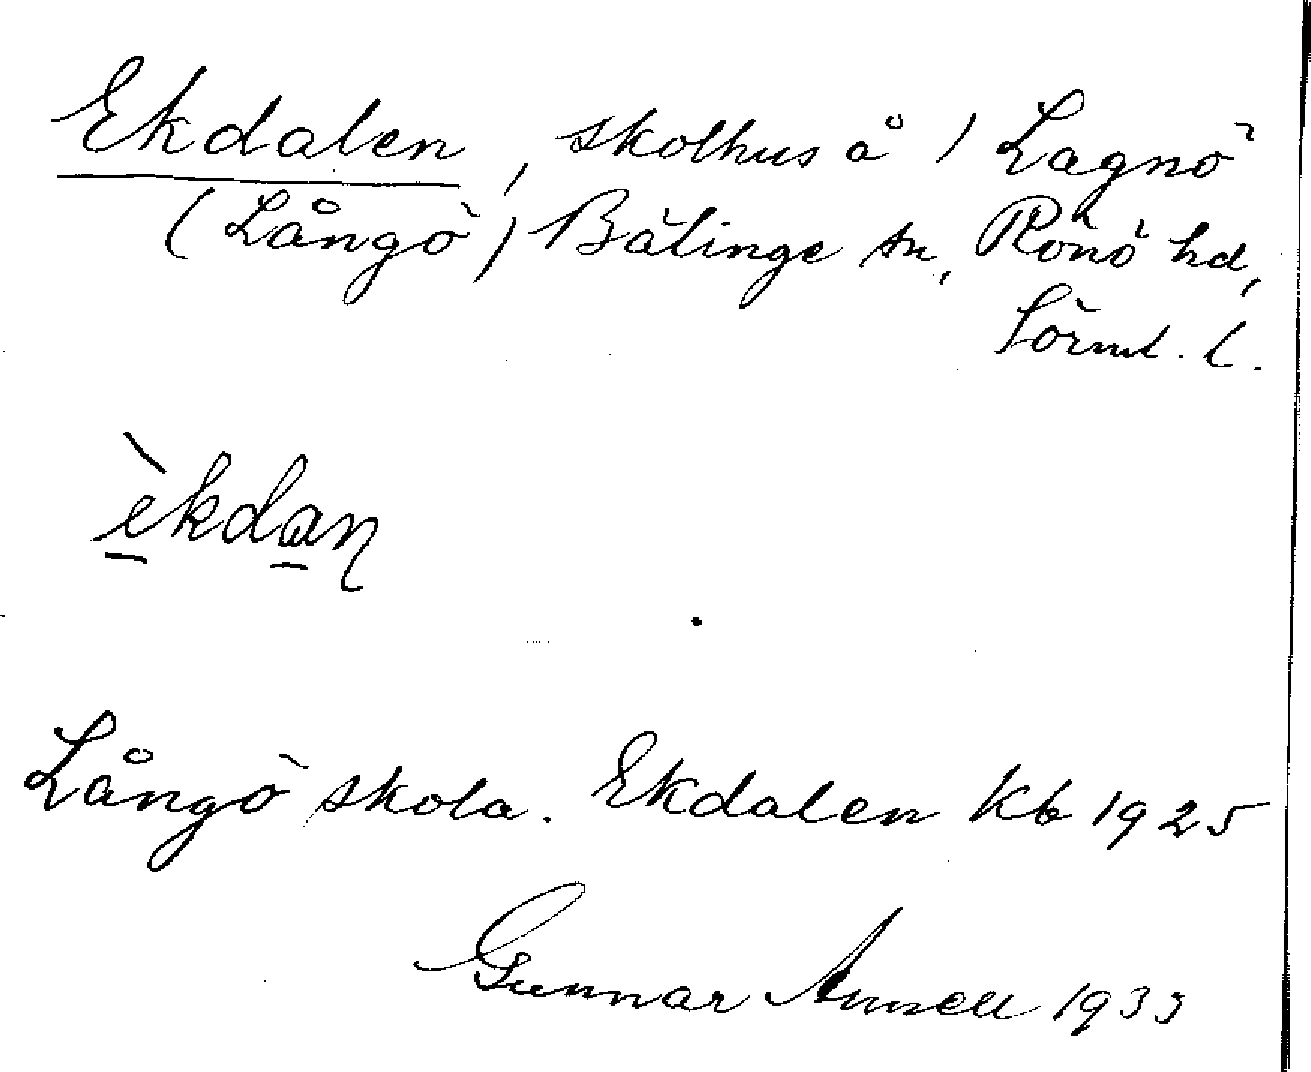 Ekdalen, skolhus å / Lagnö
(Långö) Bälinge sn, Rönö hd,
Sörml. l.
èkdaṉ
Långö skola. Ekdalen Kb 1925
Gunnar Annell 1933